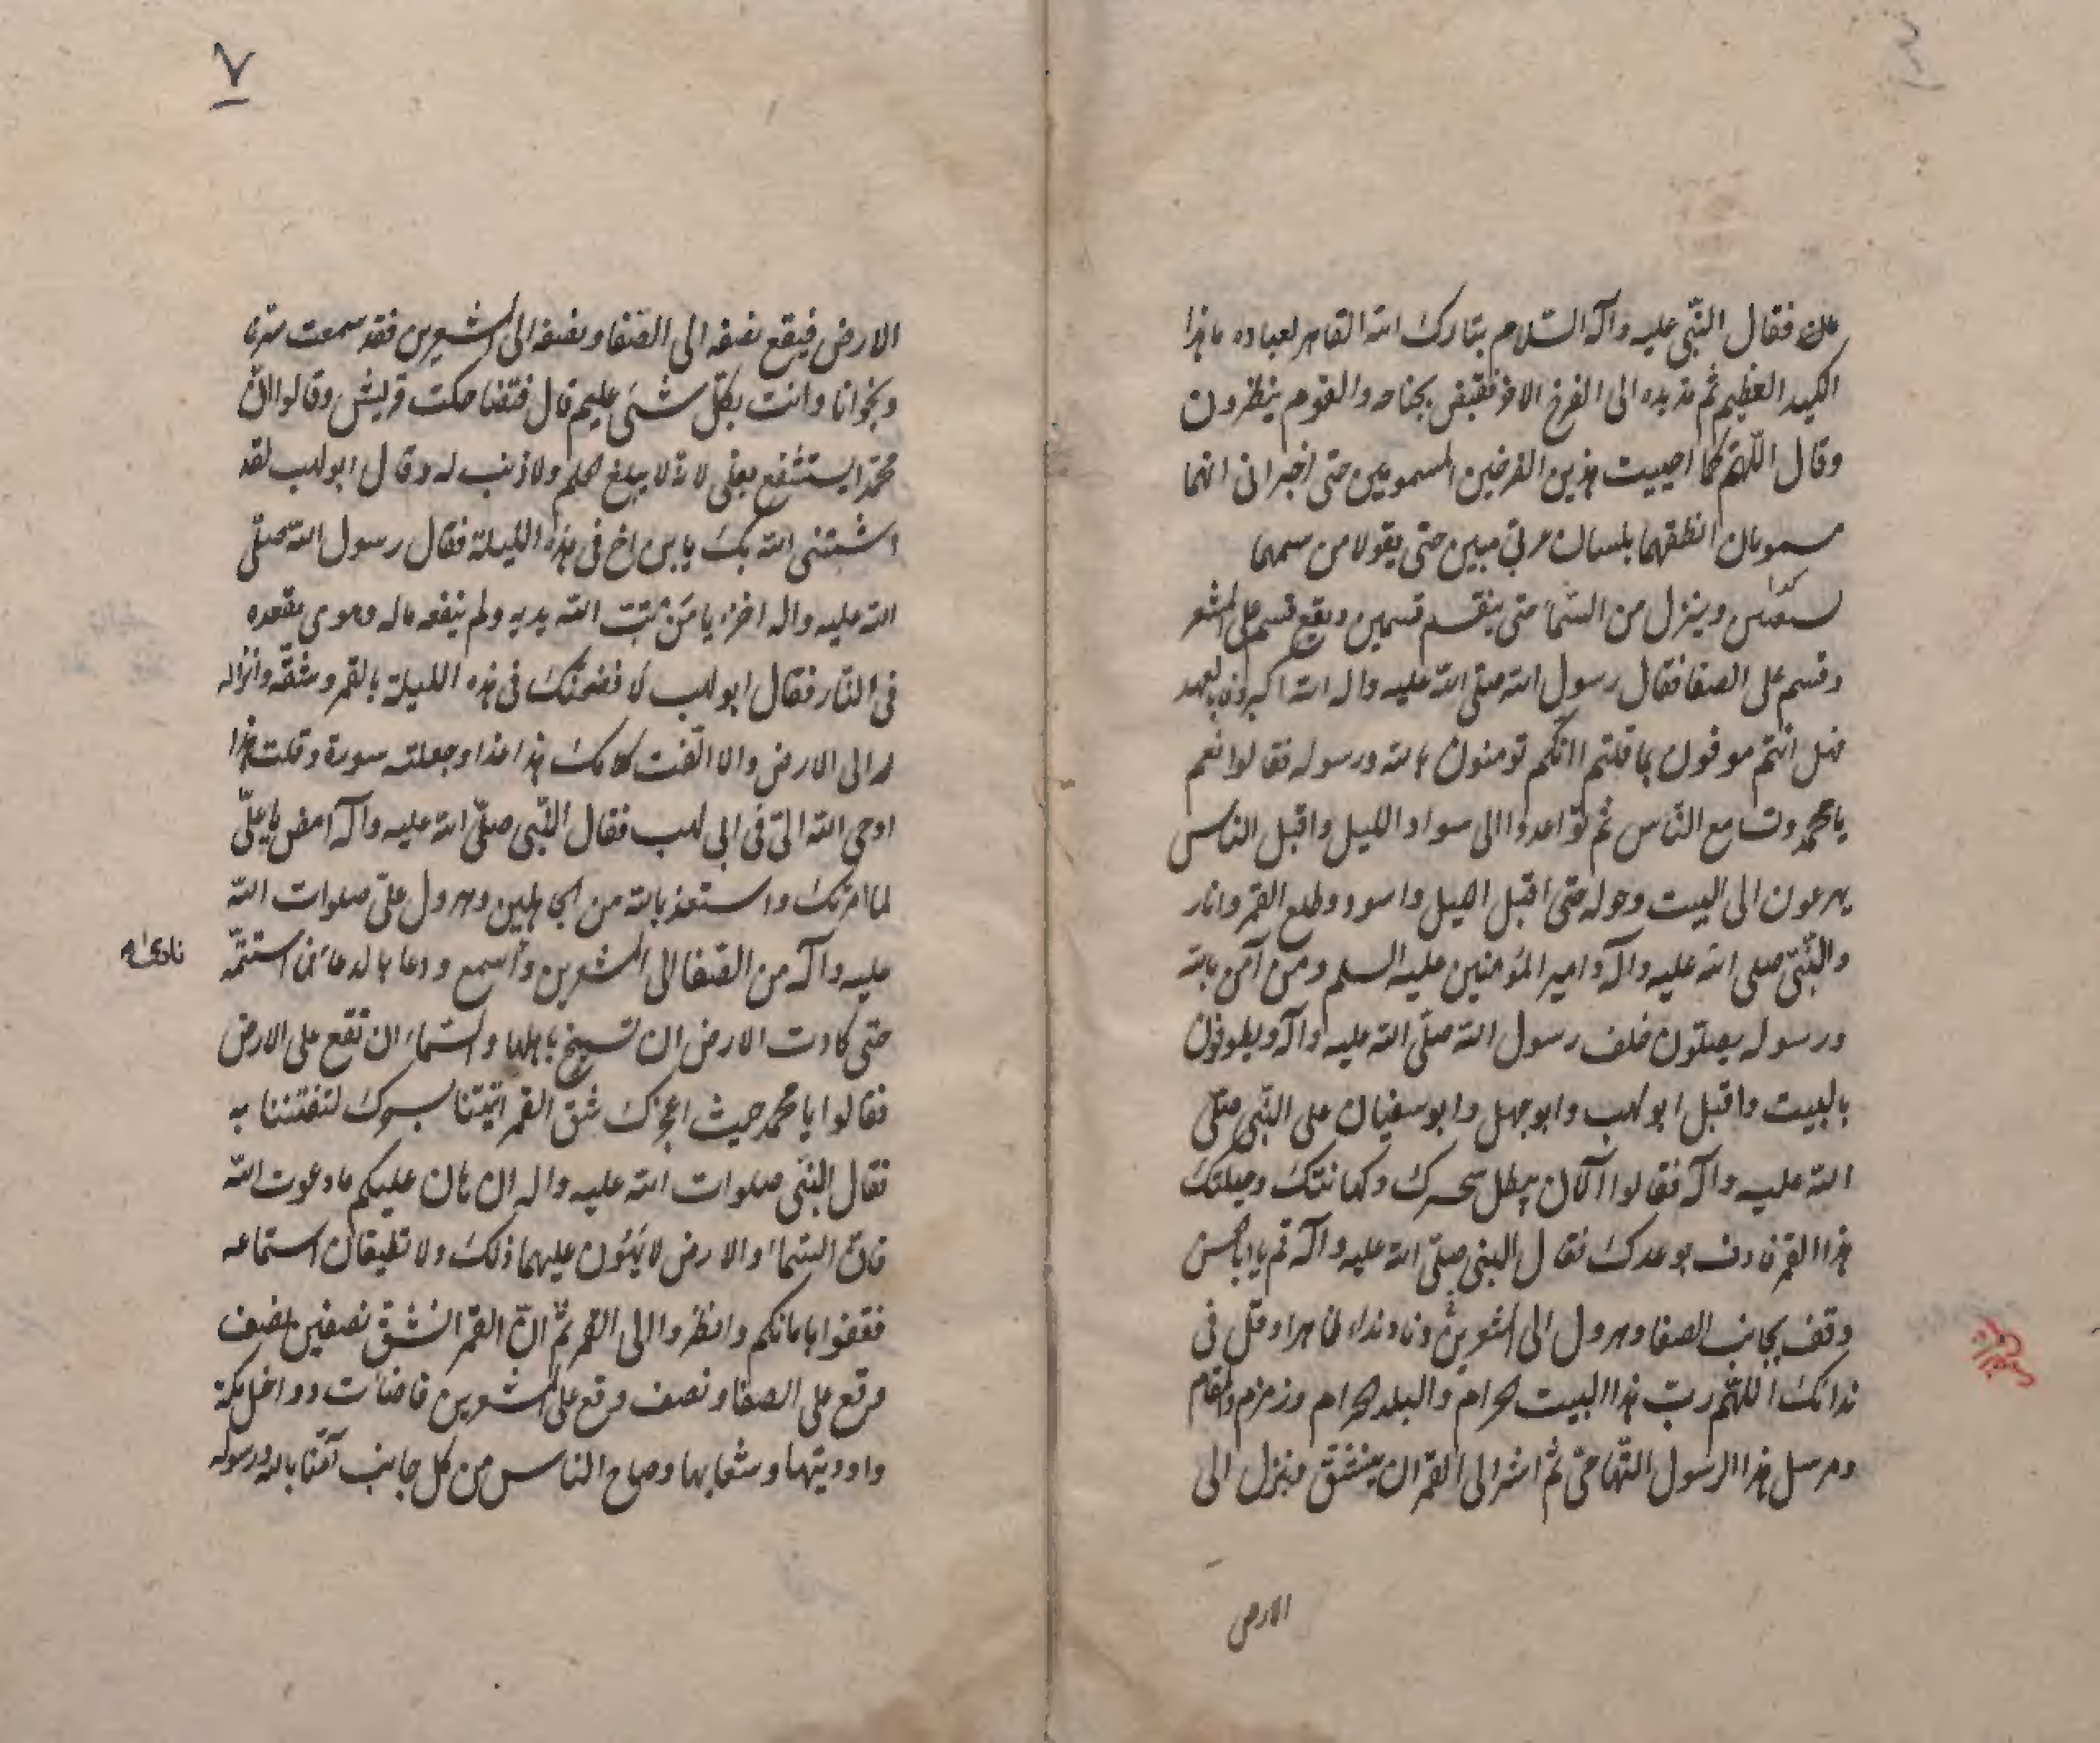 فقال النّبی علیه وآله السّلام تبارک الله القاهر لعباده ما هذا
الکید العظیم ثم مد یده الی الفرخ الاخر فقبض بجناحه والقوم ینظرون
وقال اللّهمّ کما احییت هذین الفرخین المسمومین حتی اخبرانی انهما
مسمومان انطقهما بلسان عربیّ مبین حتی یقولا من سمهما
وینزل من السّماء حتی ینقسم قسمین ویقع قسم علی المشعر
وقسم علی الصفا فقال رسول الله صلّی الله علیه واله الله اکبر
فهل انتم موفون بما قلتم انکم تومنون بالله ورسوله فقالوا نعم
یا محمد وتسامع النّاس ثم تواعدوا الی سواد اللیل واقبل الناس
یهرعون الی البیت وحوله حتی اقبل اللیل واسود وطلع القمر وانار
والنّبیّ صلی الله علیه وآله وامیر المؤمنین علیه السلم ومن آمن بالله
ورسوله یصلّون خلف رسول الله صلّی الله علیه وآله ویطوفون
بالبیت واقبل ابو لهب وابو جهل وابو سفیان علی النّبی صلّی
الله علیه وآله فقالوا الآن یبطل سحرک وکهانتک وحیلتک
هذا القمر فاوف بوعدک فقال النبی صلّی الله علیه وآله قم یا ابا الحسن
وقف بجانب الصفا وهرول الی المشعرین وناد نداء ظاهرا وقل فی
ندائک اللّهمّ ربّ هذا البیت الحرام والبلد الحرام وزمزم والمقام
ومرسل هذا الرسول التّهامی ثم اشر الی القمر ان ینشق وینزل الی
الارض
۷
الارض فیقع نصفه الی الصّفا ونصفه الی المشعرین فقد سمعت سرّنا
ونجوانا وانت بکلّ شیء علیم قال فتضاحکت قریش وقالوا انّ
محمّدا یستشفع بعلی لانّه لا یبلغ الحلم ولا ذنب له وقال ابو لهب لقد
اشمتنی الله بک یا بن اخ فی هذه اللیلة فقال رسول الله صلّی
الله علیه واله اخزء یا من تبّت الله یدیه ولم ینفعه ماله وهوی مقعده
فی النّار فقال ابو لهب لافضحنّک فی هذه اللیلة بالقمر وشقّه وانزاله
الی الارض والا الّفت کلامک هذا وجعلته سورة وقلت هذا
اوحی الله الیّ فی ابی لهب فقال النّبی صلّی الله علیه وآله امض یا علیّ
لما امرتک واستعذ بالله من الجاهلین وهرول علیّ صلوات الله
علیه وآله من الصّفا الی المشعرین ونادی واسمع ودعا بالدعاء فما استتمّه
حتی کادت الارض ان تسیخ باهلها والسّماء ان تقع علی الارض
فقالوا یا محمد حیث اعجزک شق القمر اتیتنا بسحرک لتفتننا به
فقال النّبی صلوات الله علیه واله ان هان علیکم ما دعوت الله
فانّ السّماء والارض لا یهون علیهما ذلک ولا تطیقان استماعه
فقفوا باماکنکم وانظروا الی القمر ثمّ انّ القمر انشقّ نصفین نصف
وقع علی الصفا ونصف وقع علی المشعرین فاضاءت دواخل مکة
واودیتها وشعابها وصاح الناس من کل جانب آمنّا بالله ورسوله